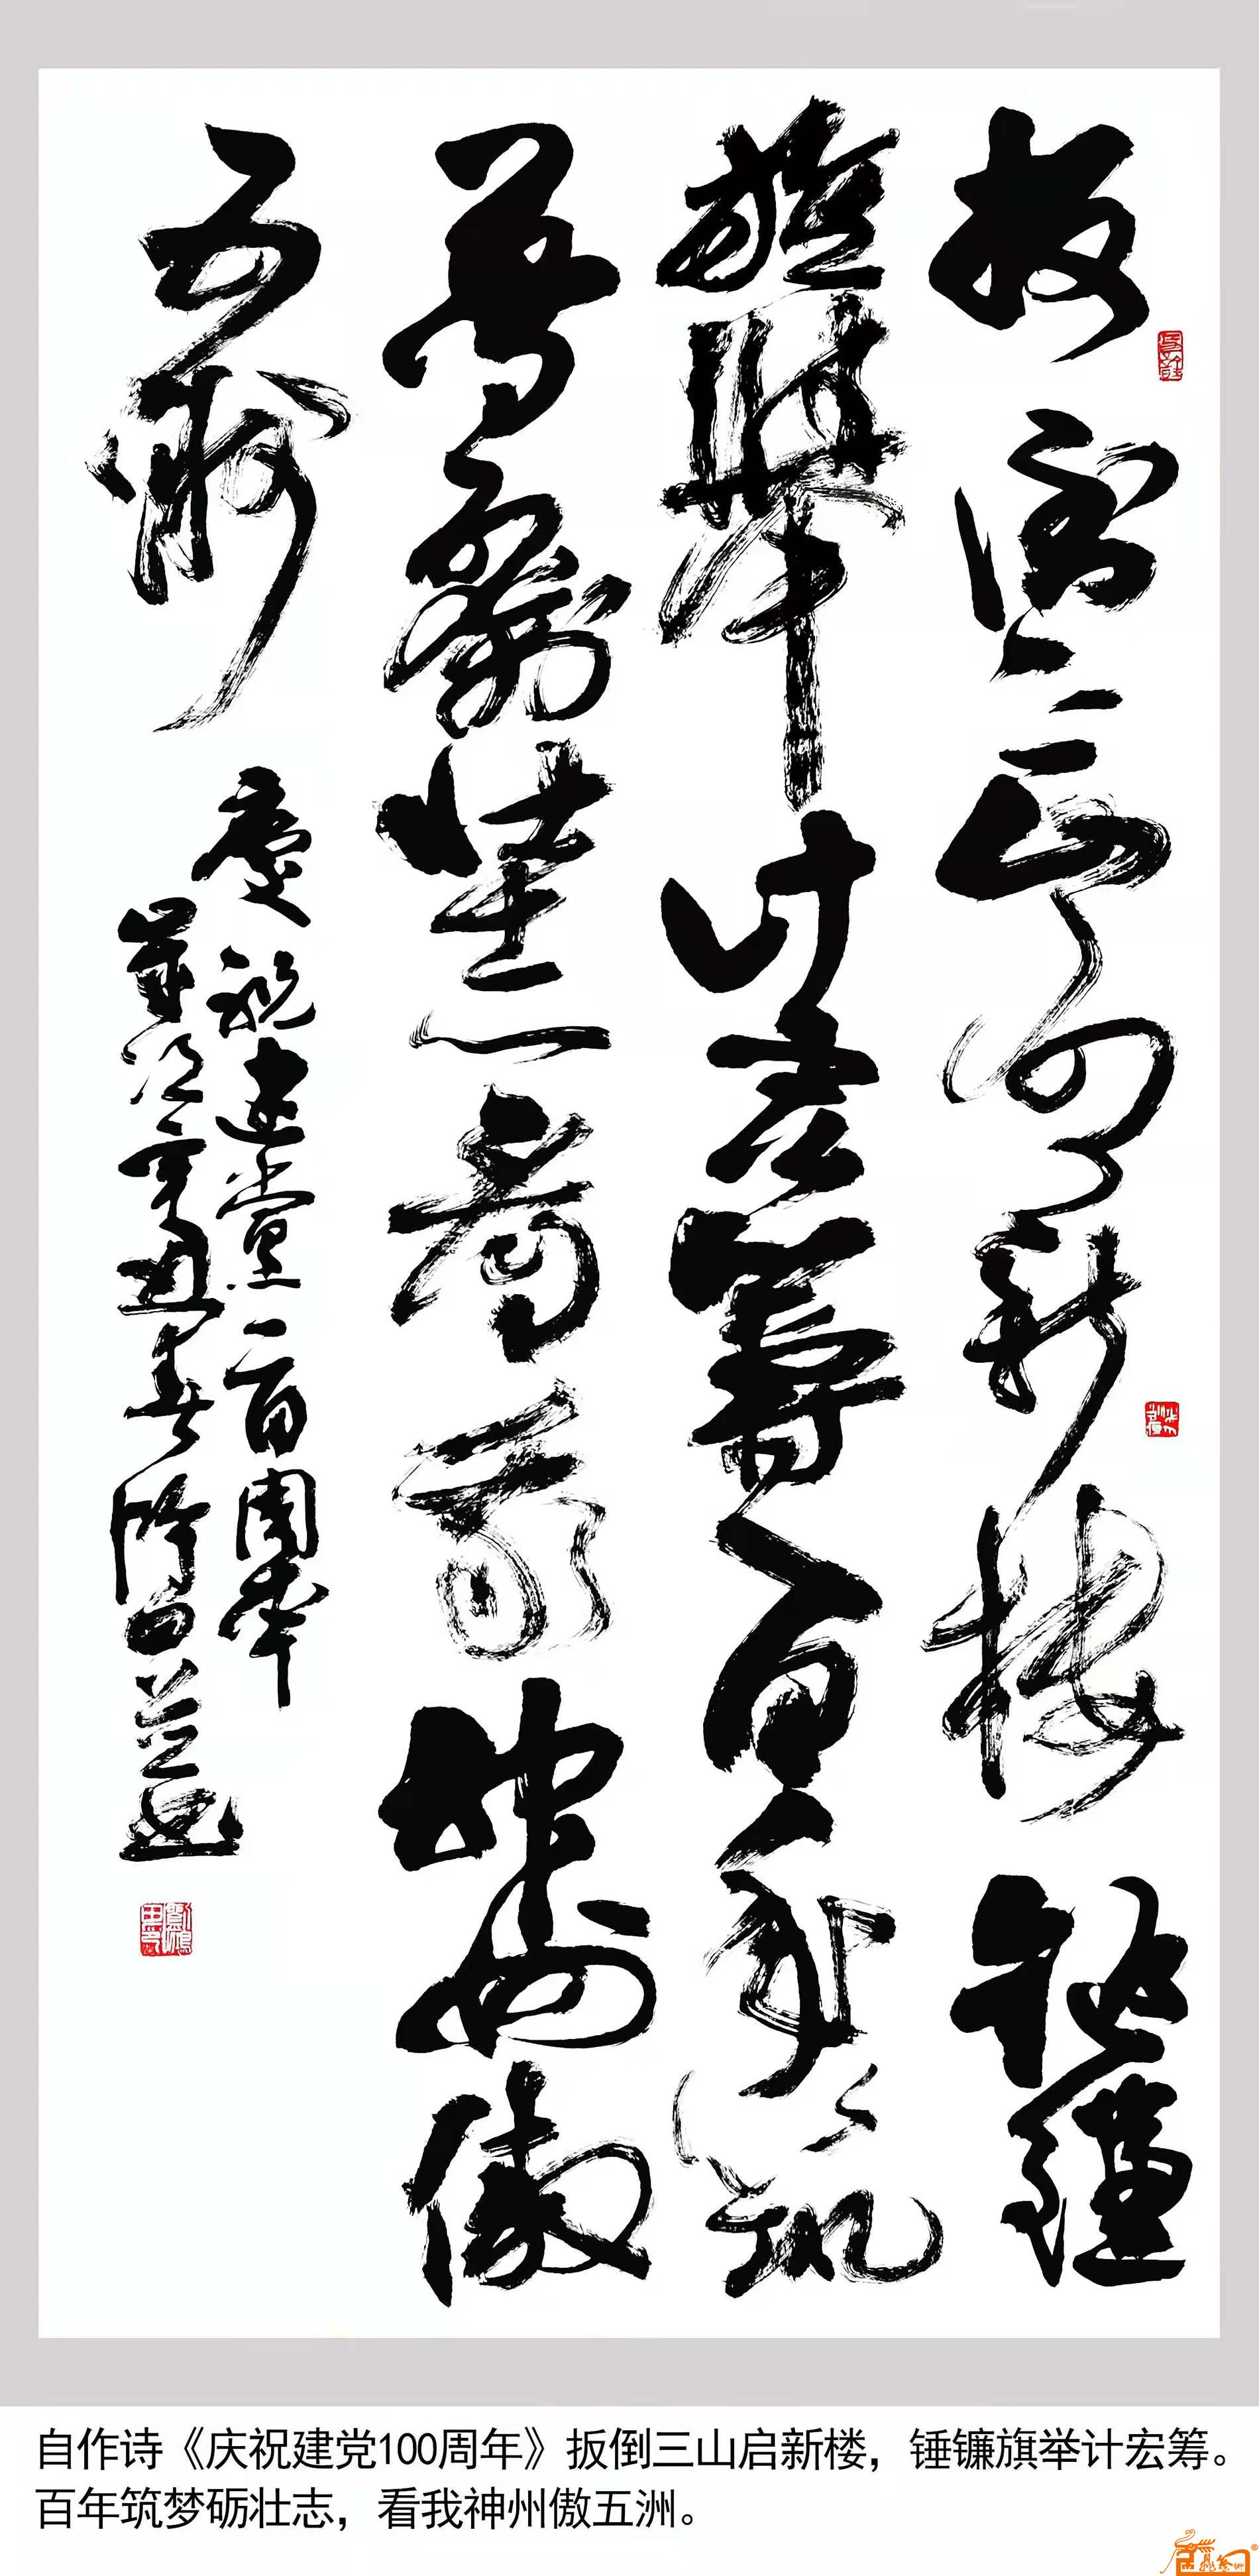 扳倒三山启新楼锤镰
旗举计宏筹百年筑
梦砺壮志看我神州傲
五洲
庆祝建党一百周年
辛丑春
自作诗《庆祝建党100周年》扳倒三山启新楼，锤镰旗举计宏筹。
百年筑梦砺壮志，看我神州傲五洲。